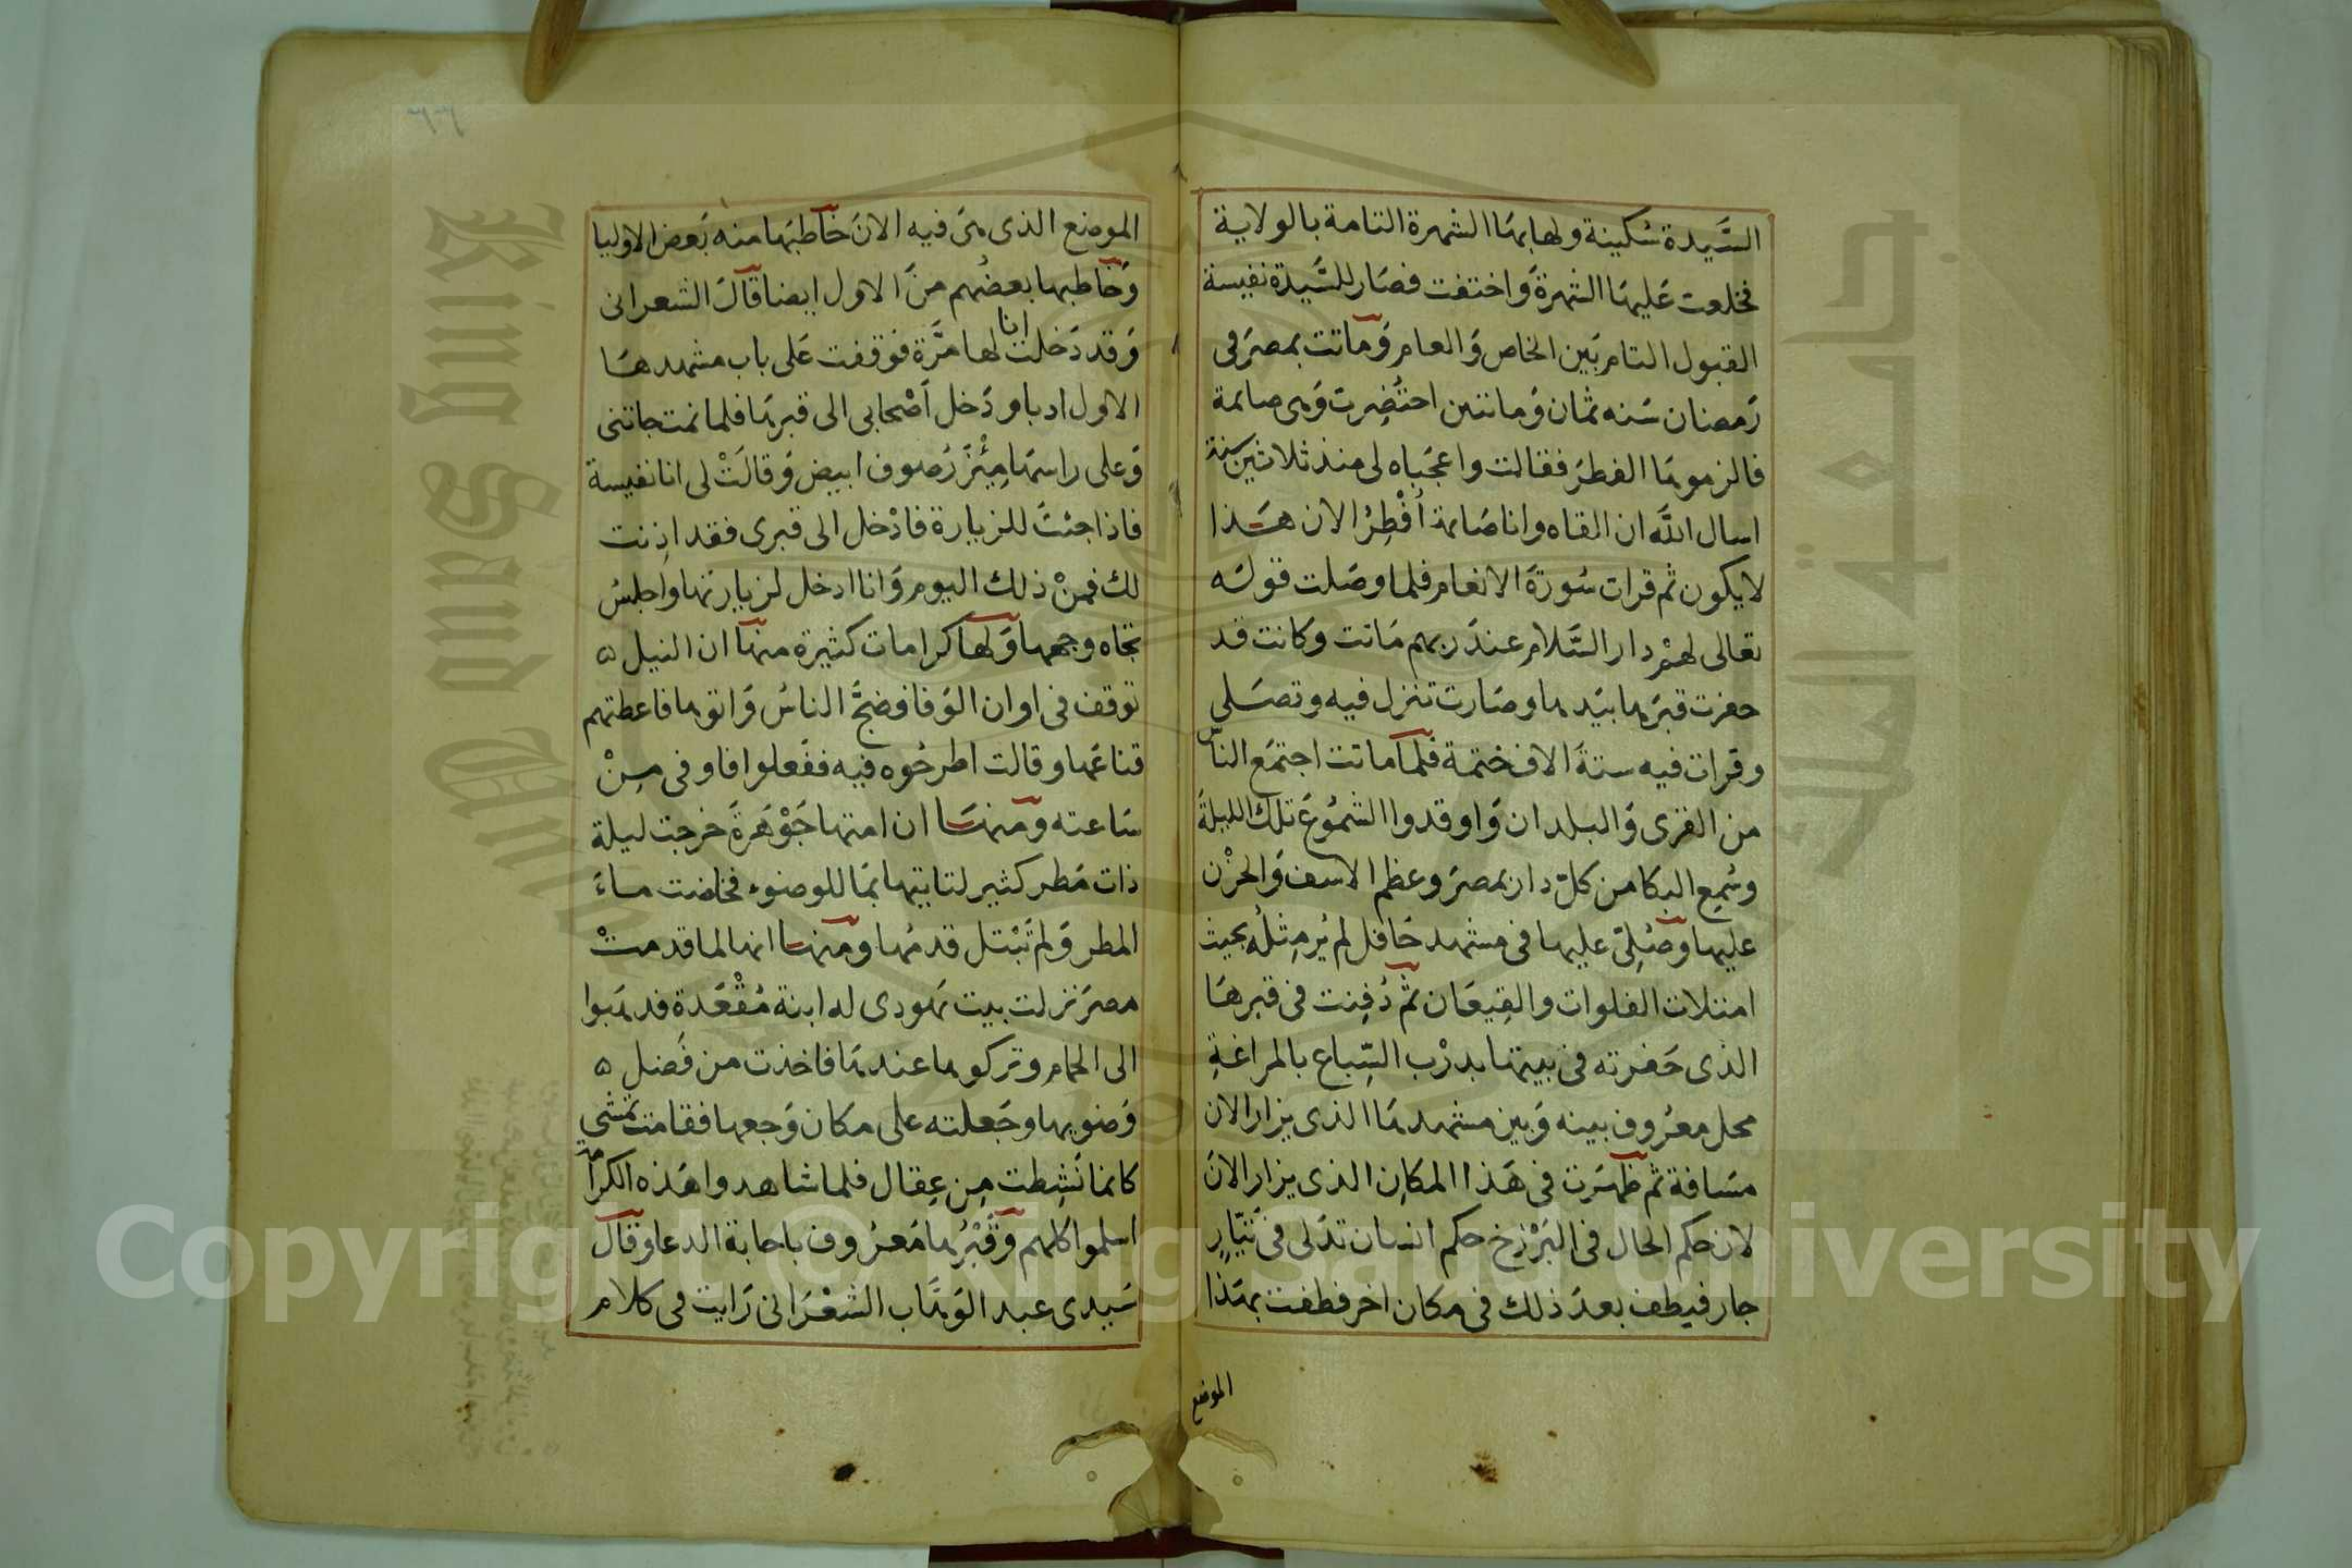 السَّيدة سُكينة ولها بهَا الشهرة التامة بالولاية
فخلعت عَليهَا الشهرةَ وَاختفت فصَار للسَّيدة نفيسة
القبول التام بَين الخاص وَالعام وَماتت بمصرَ فى
رَمضان سَنه ثمَان وَمائتين احتُضِرت وَهى صائمة
فالزموهَا الفطرَ فقالت واعجَباه لى منذ ثلاثين سنة
اسال اللَّه ان القاه وانا صَايمة أُفْطِرُ الان هَذا
لا يكون ثم قرات سُورَة الانعام فلما وصَلت قولَه
تعالى لهمْ دار السَّلام عندَ ربهم مَاتت وكانت قد
حفرت قبرَها بيَدها وصَارت تنزل فيه وتصَلى
وقرات فيه ستةَ الاف ختمة فلما ماتت اجتمَع الناس
من القرَى وَالبلدان وَاوقدوا الشمُوعَ تلك الليلةَ
وسُمِع البكا من كلّ دار بمصرَ وعظم الاسف وَالحزْن
عليها وصُلِىّ عليها فى مشهد حَافل لم يُر مِثلُه بحيث
امتلات الفلوات والقِيعَان ثم دُفِنت فى قبرهَا
الذى حَفرته فى بيتها بدرْب السِّباع بالمراغةِ
محل معرُوف بينه وَبين مشهدهَا الذى يزار الان
مسَافة ثم ظهَرت فى هَذا المكَانِ الذى يزار الانَ
لان حكم الحال فى البَرْزخ حكم انسَان تدَلى فى تَيّارٍ
جار فيطف بعدَ ذلك فى مكان اخر فطفت بهَذا
الموضع
الموضع الذى هىَ فيه الانَ خاطبَها منه بَعض الاوليا
وَخاطبها بعضُهم منَ الاول ايضا قالَ الشعرانى
وَقد دَخلت انا لها مرَّة فوقفت عَلى باب مشهدهَا
الاول ادبا ودَخل اَصْحابى الى قبرهَا فلما نمت جاتنى
وَعلى راسهَا مِئْزَرُ صُوف ابيض وَقالَتْ لى انا نفيسة
فاذا جئتَ للزيارة فادْخل الى قبرى فقد اذنت
لك فمنْ ذلك اليوم وَانا ادخل لزيارتها واجلسُ
تجاه وجهها وَلها كرامات كثيرة منهَا ان النيل ه
توقف فى اوان الوَفا فضجَّ الناسُ وَاتوها فاعطتهم
قناعَها وقالت اطرحُوه فيه ففَعلوا فاوفى مِنْ
سَاعته ومنهَا ان امتها جَوْهَرةَ خرجت ليلة
ذات مَطر كثير لتايتها بمَا للوضوء فخاضت ماءَ
المطر وَلم تَبْتل قدمُها ومنهَا انها لما قدمتْ
مصرَ نزلت بيت يَهودى له ابنة مُقْعَدة فذهَبوا
الى الحمام وتركوها عندهَا فاخذت من فَضل ه
وَضويها وجَعلته على مكان وَجعها فقامت تمشى
كانما نَشِطت مِن عِقال فلما شاهدوا هَذه الكرامة
اسلموا كلهم وَقَبْرُها مَعرُوف باجابة الدعا وقالَ
سَيدى عبد الوَهَّاب الشعْرَانى رَايت فى كلام
Copyright © King Saud University